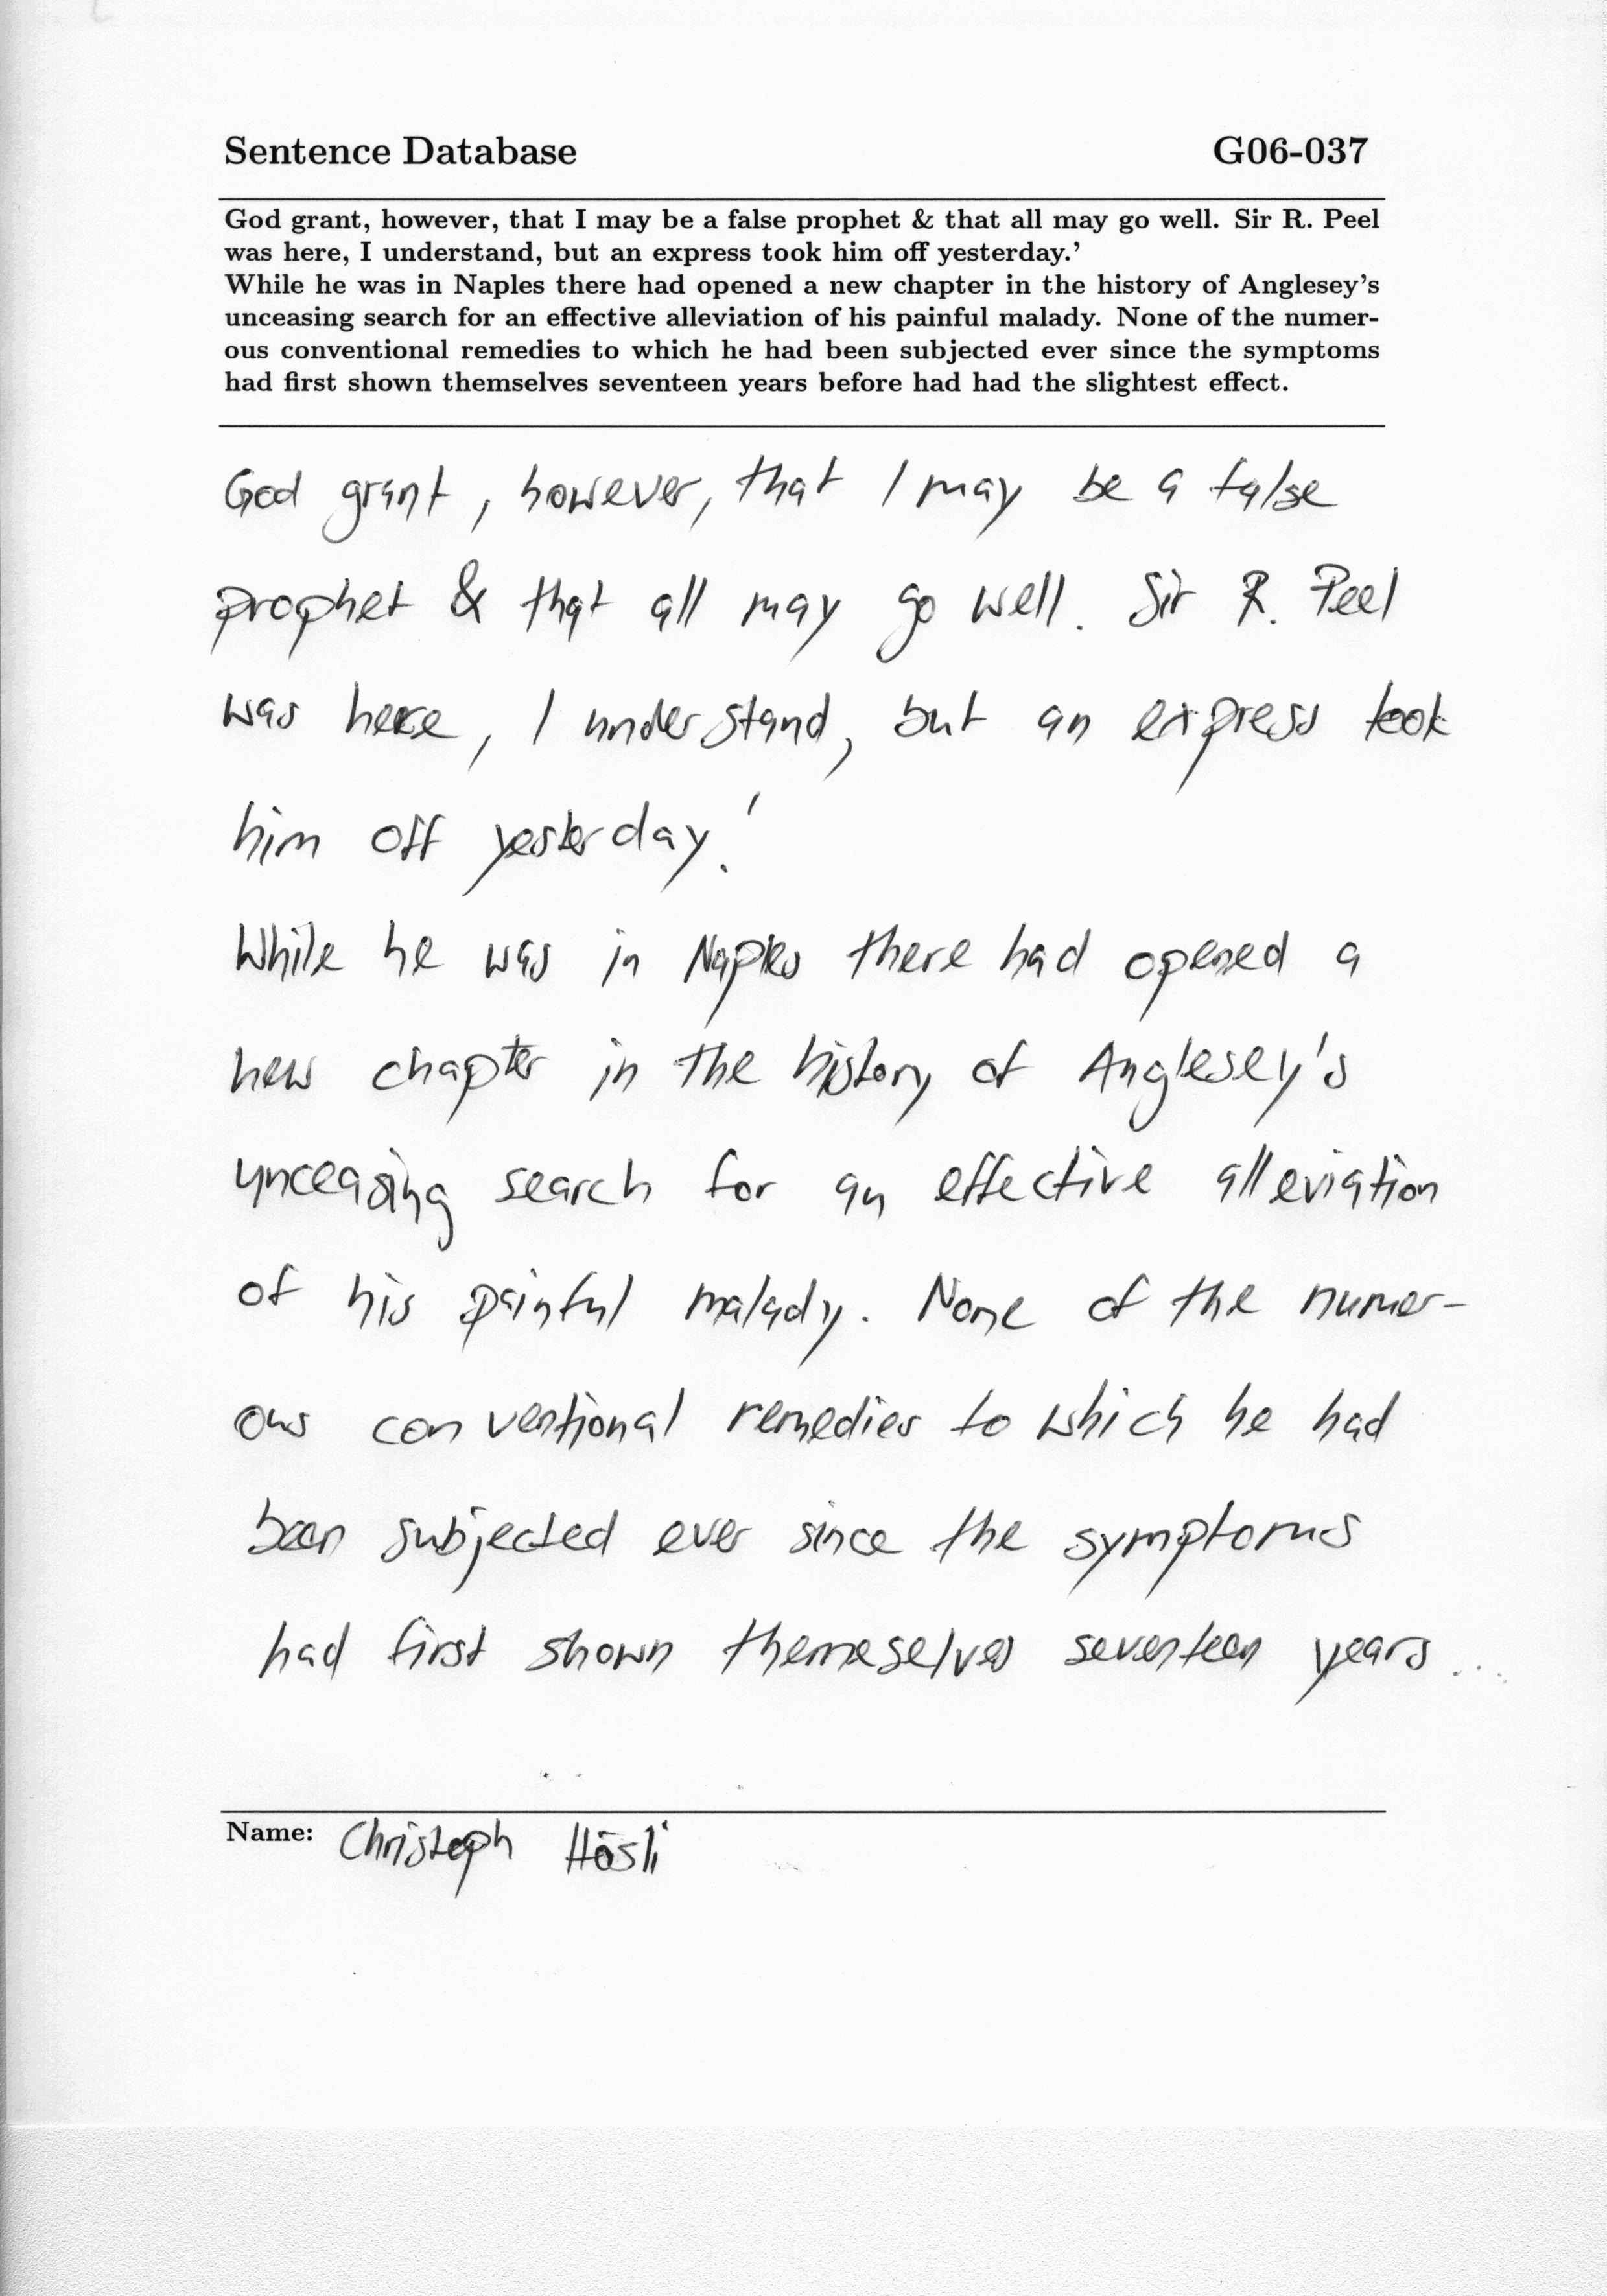 Sentence Database G06-037
God grant, however, that I may be a false prophet & that all may go well. Sir R. Peel
was here, I understand, but an express took him off yesterday.’
While he was in Naples there had opened a new chapter in the history of Anglesey’s
unceasing search for an effective alleviation of his painful malady. None of the numer-
ous conventional remedies to which he had been subjected ever since the symptoms
had first shown themselves seventeen years before had had the slightest effect.
God grant, however, that I may be a false
prophet & that all may go well. Sir R. Peel
was here, I understand, but an express took
him off yesterday.'
While he was in Naples there had opened a
new chapter in the history of Anglesey's
unceasing search for an effective alleviation
of his painful malady. None of the numer-
ous conventional remedies to which he had
been subjected ever since the symptoms
had first shown themeselves seventeen years...
Name: Christoph Hösli